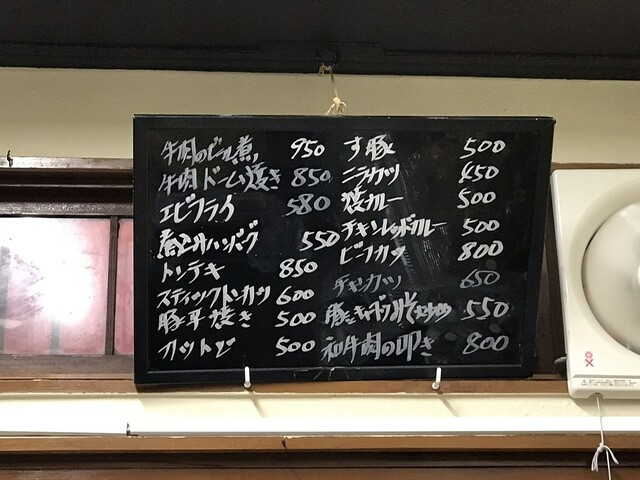 牛肉のビール煮 950
牛肉ドーム焼き 850
エビフライ 580
煮込みハンバーグ 550
トンテキ 850
スティックトンカツ 600
豚平焼き 500
500
す豚 500
ニラカツ 450
焼カレー 500
チキンレッドカレー 500
ビーフカツ 800
チキンカツ 650
豚とキャベツ 550
和牛肉の叩き 800